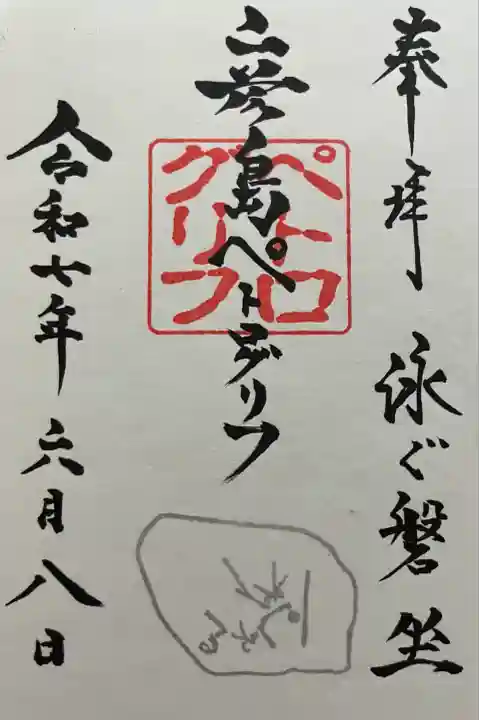 奉拝 泳ぐ磐坐
島ペトログリフ
ペトロ
グリフ
令和七年六月八日